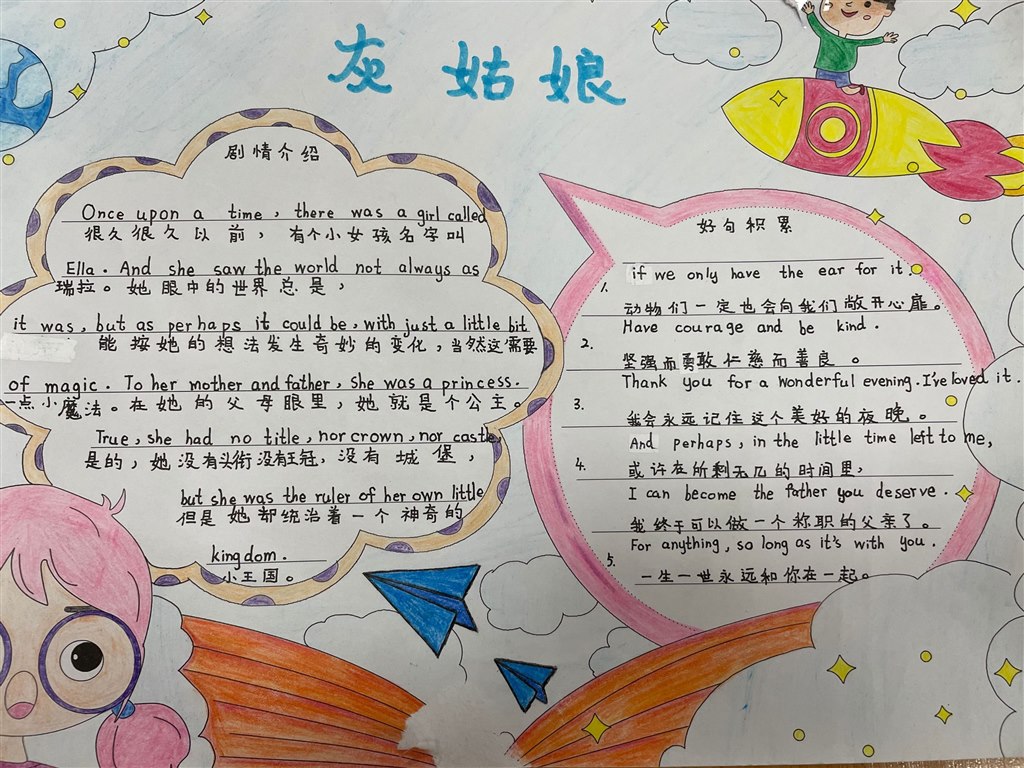 灰姑娘
剧情介绍
Once upon a time, there was a girl called
很久很久以前，有个小女孩名字叫
Ella. And she saw the world not always as
瑞拉。她眼中的世界总是，
it was, but as perhaps it could be, with just a little bit
能按她的想法发生奇妙的变化，当然这需要
of magic. To her mother and father, she was a princess.
一点小魔法。在她的父母眼里，她就是个公主。
True, she had no title, nor crown, nor castle,
是的，她没有头衔没有王冠，没有城堡，
but she was the ruler of her own little
但是她却统治着一个神奇的
kingdom.
小王国。
好句积累
1. if we only have the ear for it.
动物们一定也会向我们敞开心扉。
Have courage and be kind.
2. 坚强而勇敢仁慈而善良。
Thank you for a wonderful evening. I've loved it.
3. 我会永远记住这个美好的夜晚。
And perhaps, in the little time left to me,
4. 或许在所剩无几的时间里，
I can become the father you deserve.
我终于可以做一个称职的父亲了。
For anything, so long as it's with you.
5. 一生一世永远和你在一起。